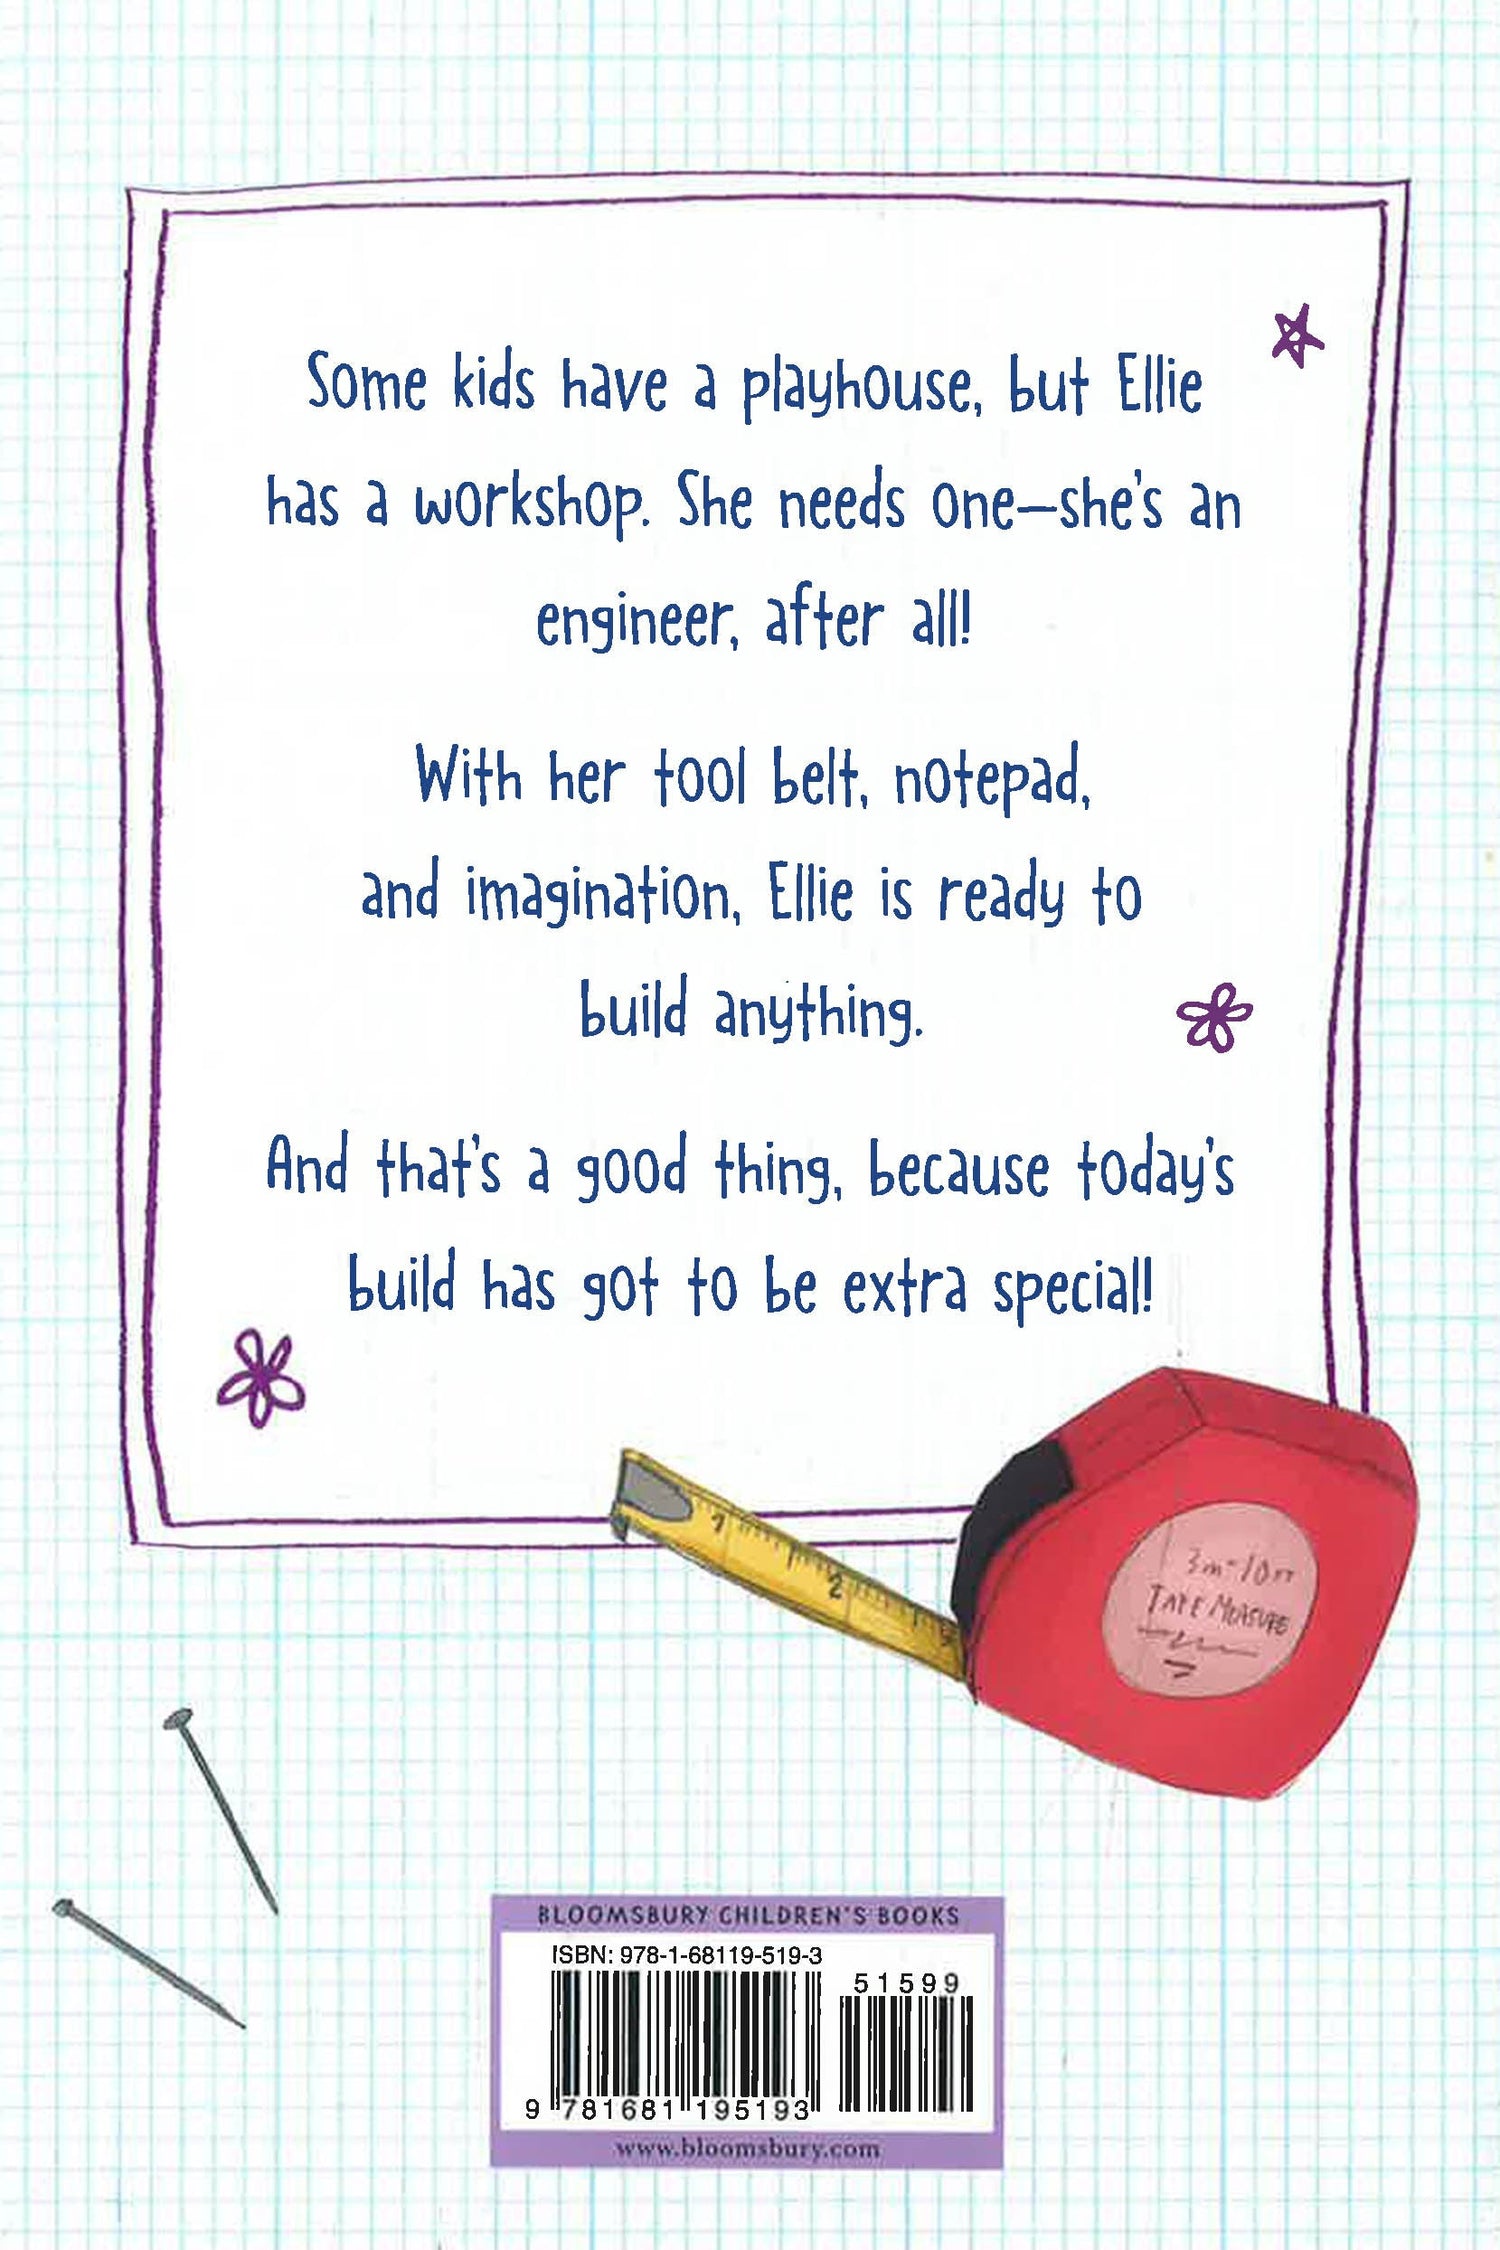 Some kids have a playhouse, but Ellie
has a workshop. She needs one—she's an
engineer, after all!
With her tool belt, notepad,
and imagination, Ellie is ready to
build anything.
And that's a good thing, because today's
build has got to be extra special!
1 2
3m-10FT
TAPE MEASURE
BLOOMSBURY CHILDREN'S BOOKS
ISBN: 978-1-68119-519-3
51599
9 781681 195193
www.bloomsbury.com